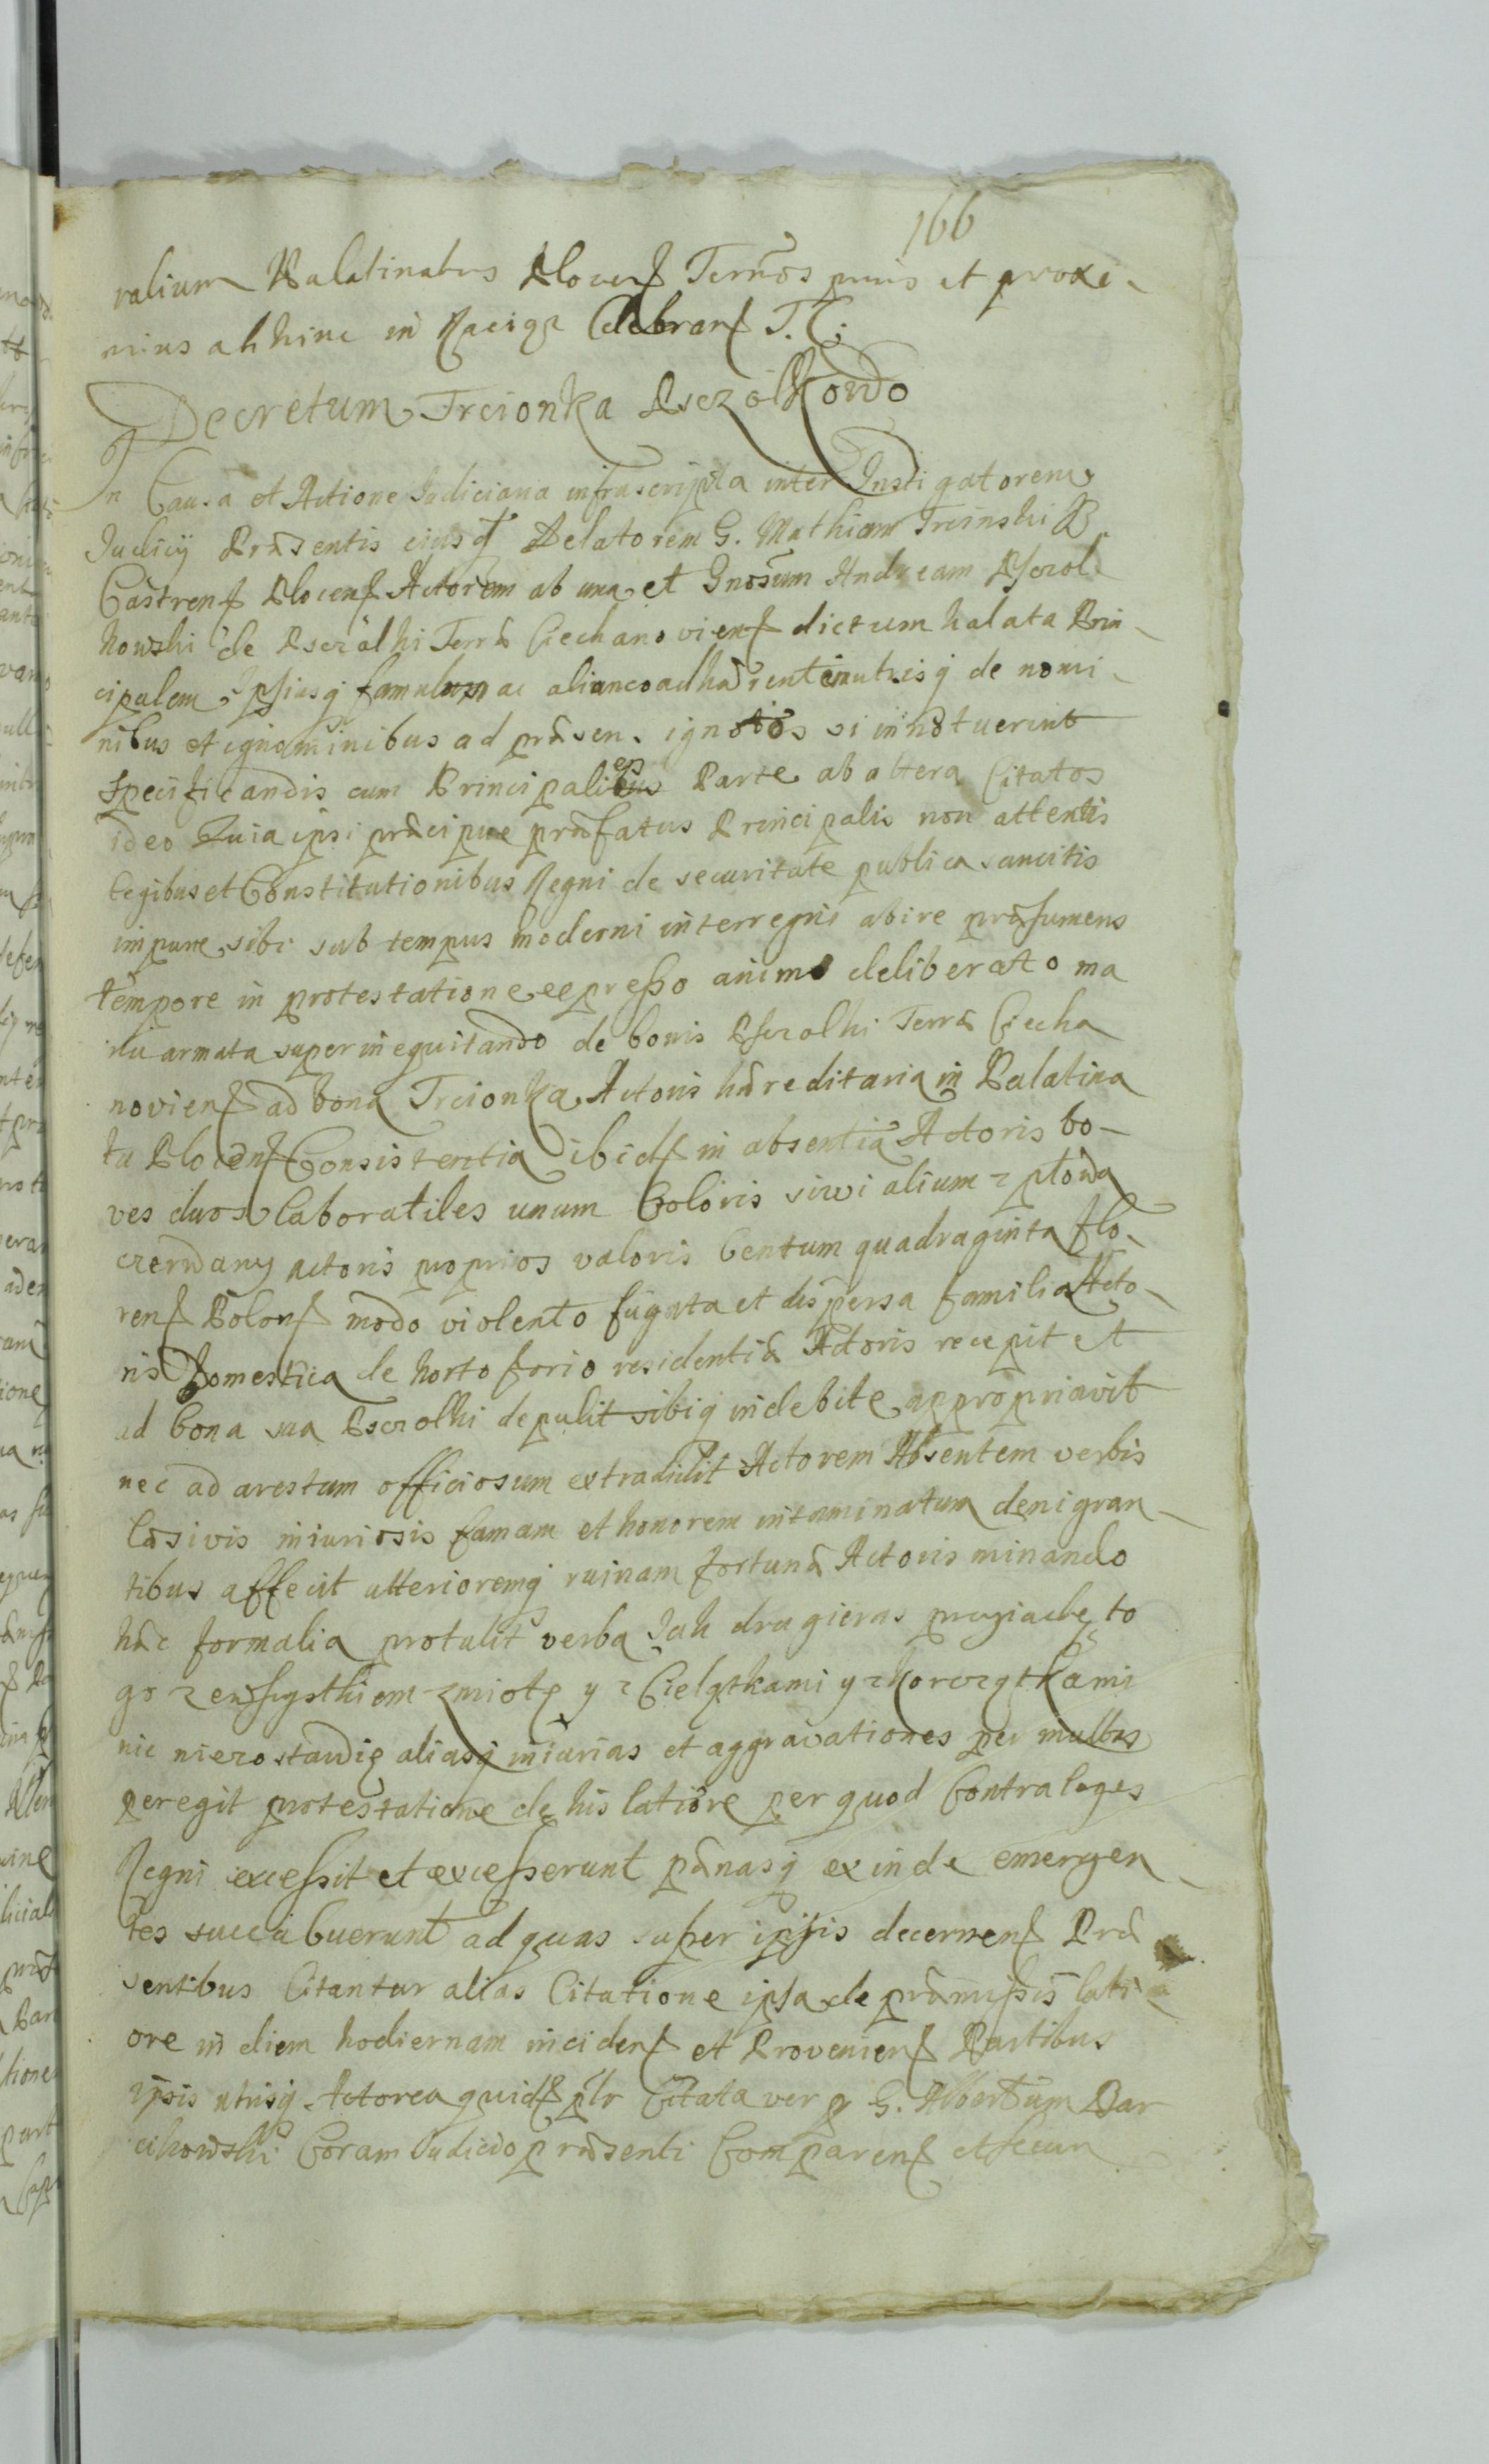 166
ralium Palatinatus Plocens Terrnos prius et proxi-
mius abhinc in Raciąz Celebrans T. C.
Decretum Trcionka Psczolkowo
In Causa et Actione Judiciaria infrascripta inter Instigatorem
Judicij Præsentis eiusq Delatorem G. Mathiam Trcinski B.
Castrens Plocens Actorem ab una et Gnosum Andream Psczol-
kowski de Psczolki Terræ Ciechanoviens dictum kalata Prin-
cipalem Ipsiusq famulum ac alium coadhærentem utrisq de nomi-
nibus et cignominibus ad præsen. ignotos si innotuerint
specificandis cum Principalibus es Parte ab altera Citatos
ideo Quia ipsi præcipue præfatus Principalis non attentis
legibus et Constitutionibus Regni de securitate publica sancitis
impune sibi sub tempus moderni interregni abire præsumens
tempore in protestatione expresso animo deliberato ma
nu armata superinequitando de bonis Psczolki Terræ Ciecha
noviens ad bona Trcionka Actoris hæreditaria in Palatina
tu Plocens Consistentia ibide in absentia Actoris bo-
ves duos laboratiles unum Coloris siwi alium z płowa
czerwany actoris proprios valoris Centum quadraginta flo-
rens Polons modo violento fugata et dispersa familia Acto-
ris Domestica de horto forio residentiæ Actoris recepit et
ad bona sua Psczolki depulit sibiq indebite appropriavit
nec ad arestum officiosum extradidit Actorem Absentem verbis
læsivis iniuriosis famam et honorem intaminatum denigran-
tibus affecit ulterioremq ruinam fortunæ Actoris minando
hæc formalia protulit verba Jak drugi eras przyiadę to
go zewszystkiem zmiotę y z Cielątkami y z korczątkami
nic niezostawię aliasq iniurias et aggravationes per multas
peregit protestatione de his latiore per quod Contra leges
Regni excessit et excesserunt pænasq exinde emergen-
tes succubuerunt ad quas super ipsis decernens Præ
sentibus Citantur alias Citatione ipsa de præmissis lati
ore in diem hodiernam incidens et Proveniens Partibus
ipsis utrisq Actorea quide plr Citata ver p G. Albertum Dar
cikowski Coram Judicio præsenti Comparens et secun